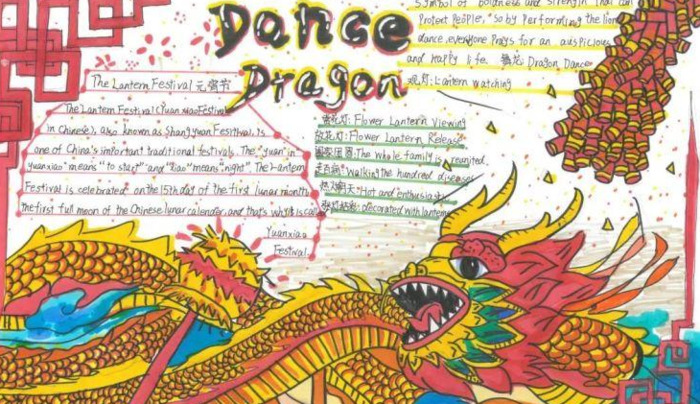 Dance
Dragon
symbol of boldness and strength that can
Protect People, "so by Performing the lion
dance, everyone Prays for an auspicious
and happy life. 舞龙 Dragon Dance
观灯: Lantern watching
The Lantern Festival 元宵节
The Lantern Festival (Yuanxiao Festival
in Chinese), also known as Shangyuan Fesitival, is
one of China's important traditional festivals. The "yuan" in
yuanxiao "means" to start" and "xiao" means "night". The Lantern
Festival is celebrated on the 15th day of the first lunar month,
the first full moon of the Chinese lunar calendar, and that's why it is called
Yuanxiao
Festival.
赏花灯: Flower Lantern Viewing
放花灯: Flower Lantern Release
The whole family is reunited
走百病: "walking the hundred diseases
热火朝天: Hot and enthusiastic
张灯结彩: decorated with lantern